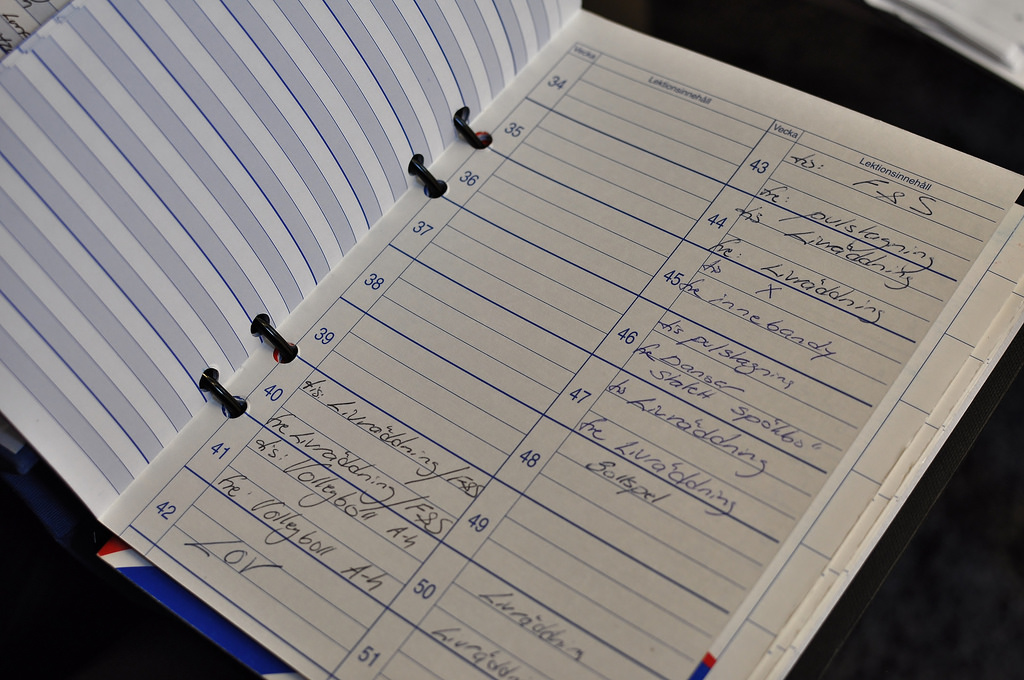 Vecka Lektionsinnehåll
34
35
36
37
38
39
40 tis: Livräddning/F&S
fre Livräddning/F&S
41 tis: Volleyboll A-h
fre: Volleyboll A-h
42 LOV
Vecka Lektionsinnehåll
43 tis: F&S
fre: pulslagning
44 tis Livräddning
fre: Livräddning
45 tis X
fre innebandy
46 tis pulslagning
fre Danse
Stolett spökbo"
47 tis Livräddning
fre Livräddning
48 Bollspel
49
50 Livräddning
51 Livräddn